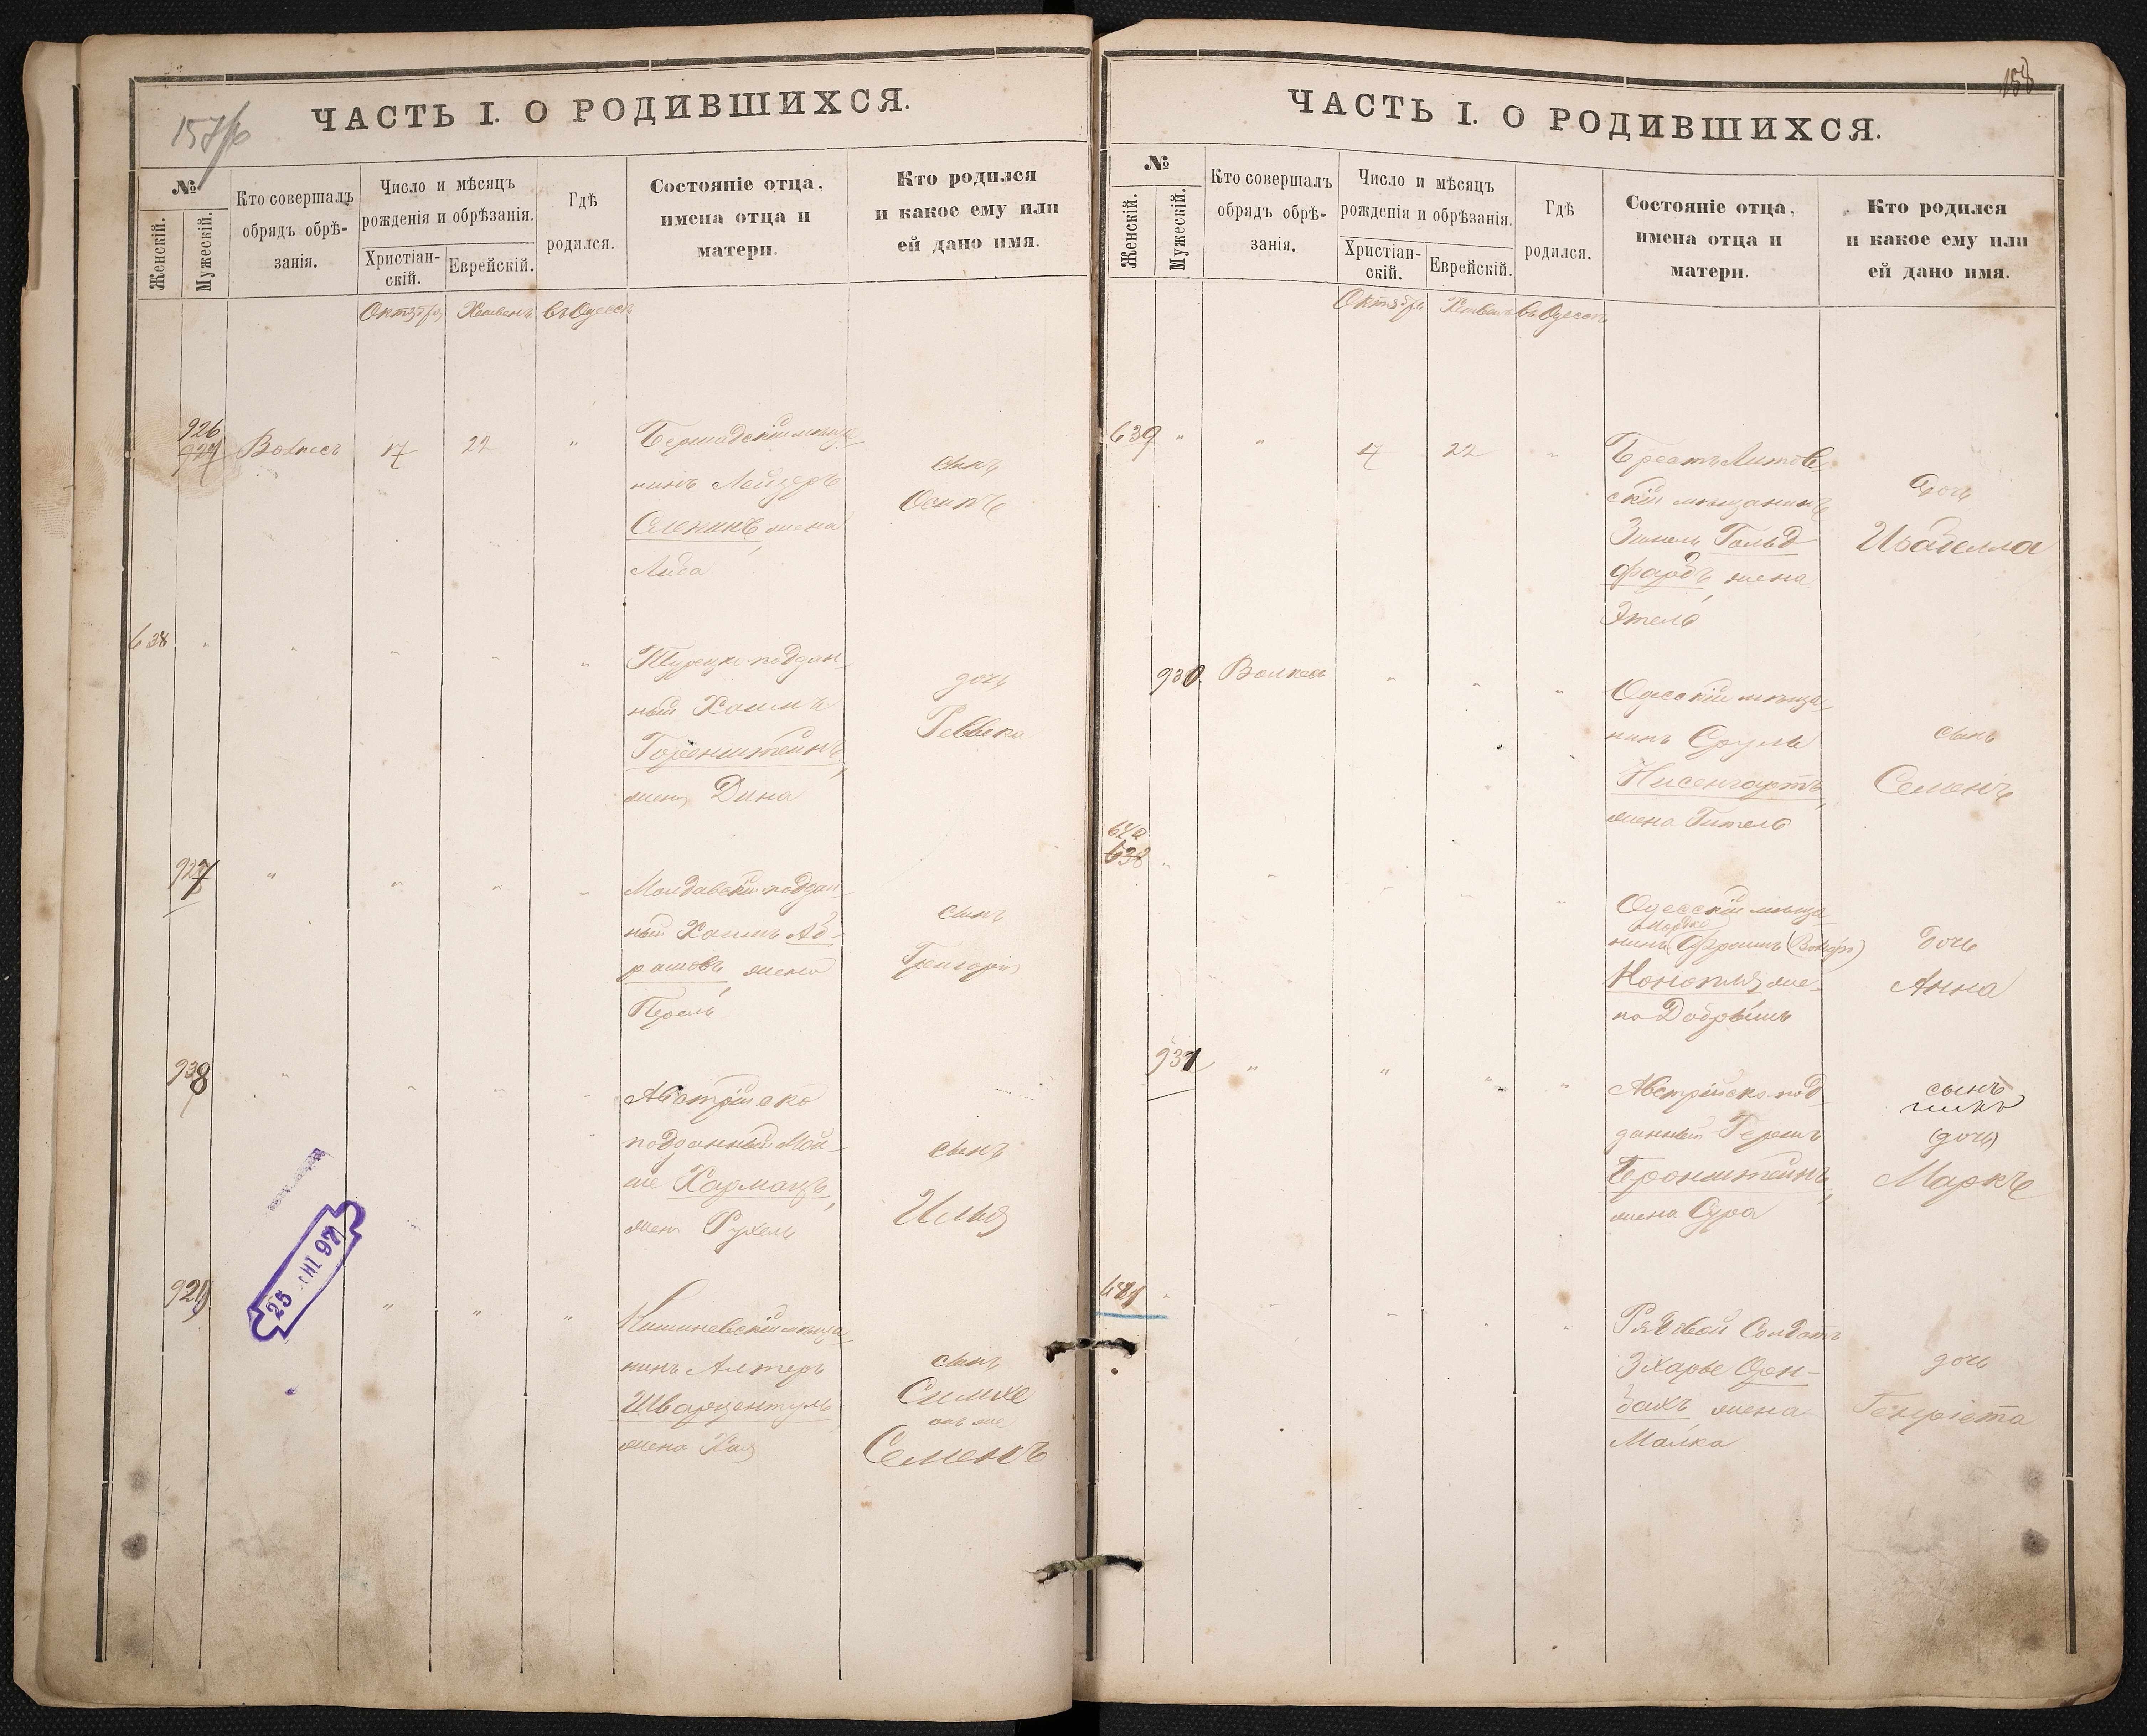 157/б
ЧАСТЬ I. О РОДИВШИХСЯ.
№
Женскій.
Мужескій.
Кто совершалъ
обрядъ обрѣ-
занія.
Число и мѣсяцъ
рожденія и обрѣзанія.
Христіан-
скій.
Еврейскій.
Гдѣ
родился.
Состояніе отца,
имена отца и
матери.
Кто родился
и какое ему или
ей дано имя.
Октябрь Хешвенъ въ Одессѣ
926
17 22 "
Бершадскій мѣща-
нинъ Лейзеръ
жена
сынъ
Осипъ
638 " " " " "
Турецко-поддан-
ный Хаимъ
Горенштейнъ,
жена Дина
дочь
Реввека
927 " " " "
Молдавскій поддан-
ный Хаимъ Аб-
рамовъ, жена
Перль
сынъ
Григорій
928 " " " "
Австрійско
поддан­ный Мой-
ше Хармацъ,
жена Рухель
сынъ
Илья
929 " " "
Кишиневскій мѣща-
нинъ Алтеръ
Шварцентуль
жена Хая
сынъ
Симхе
онъ же
Семенъ
25 97
158
ЧАСТЬ I. О РОДИВШИХСЯ.
№
Женскій.
Мужескій.
Кто совершалъ
обрядъ обрѣ-
занія.
Число и мѣсяцъ
рожденія и обрѣзанія.
Христіан-
скій.
Еврейскій.
Гдѣ
родился.
Состояніе отца,
имена отца и
матери.
Кто родился
и какое ему или
ей дано имя.
Октябрь Хешвенъ въ Одессѣ
639 " " 17 22 "
Брестъ-Литов-
скій мѣщанинъ
Гольд
фарбъ, жена
Этель
дочь
Изабелла
930 " " "
Одесскій мѣща-
нинъ Сруль
Нисенгартъ,
жена Гитель
сынъ
Семенъ
640
638 "
Одесскій мѣща-
нинъ Фроимъ
Конопля, же-
на Добрышъ
дочь
Анна
931 " " " "
Австрійско-под
данный Гершъ
Бронштейнъ,
жена Сура
сынъ
(дочь)
Маркъ
641 " " " "
Рядовой Солдатъ
жена
Малка
дочь
Генріета